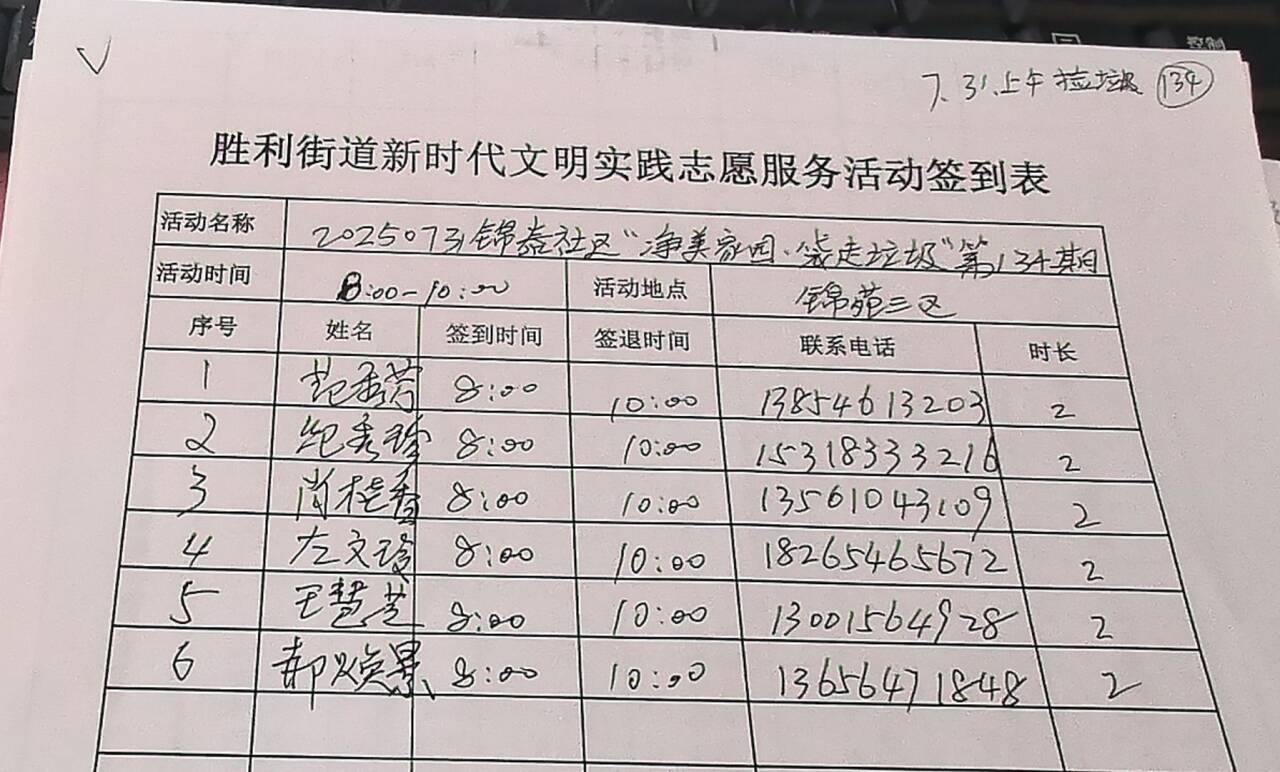 控制
7.31.上午 捡垃圾 134
胜利街道新时代文明实践志愿服务活动签到表
活动名称 20250731锦泰社区“净美家园·袋走垃圾”第134期
活动时间 8:00-10:00 活动地点 锦苑三区
序号 姓名 签到时间 签退时间 联系电话 时长
1 范秀芳 8:00 10:00 13854613203 2
2 纪秀玲 8:00 10:00 15318333216 2
3 肖桂香 8:00 10:00 13561043109 2
4 左文玲 8:00 10:00 18265465672 2
5 王慧芝 8:00 10:00 13001564928 2
6 郝焕景 8:00 10:00 13656471848 2